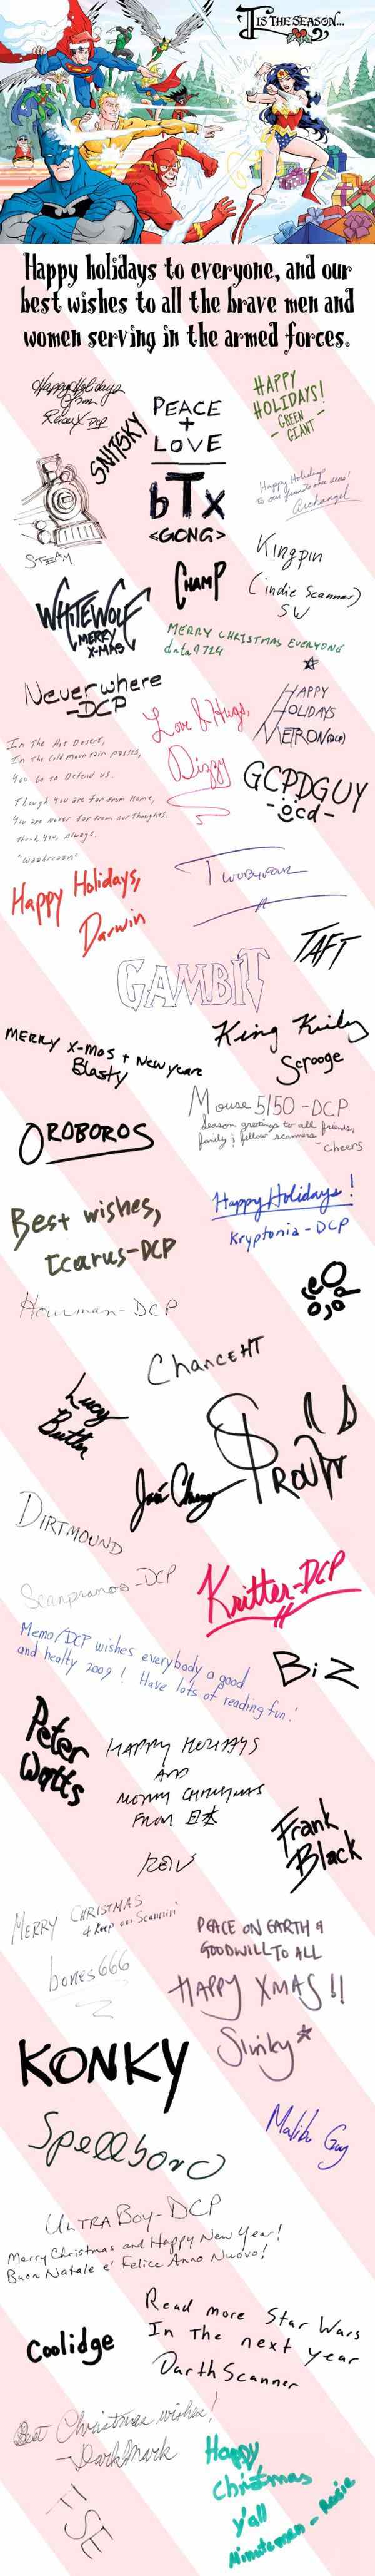 'TIS THE SEASON...
Happy holidays to everyone, and our
best wishes to all the brave men and
women serving in the armed forces.
Happy Holidays
from
DCP
SNITSKY
PEACE
+
LOVE
bTx
<GONG>
HAPPY
HOLIDAYS!
GREEN
GIANT
STEAM
Happy Holidays
to our friends
Archangel
Kingpin
(indie Scanner)
SW
CHAMP
WHITEWOLF
MERRY
X-MAS
MERRY CHRISTMAS EVERYONE
data9724
Neverwhere
-DCP
HAPPY
HOLIDAYS
METRON (DCP)
Love & Hugs,
Dizzy
In The Hot Desert,
In The Cold mountain passes,
You Go To Defend us.
Though you are far from Home,
You are never far from our Thoughts.
Thank you, Always.
GCPDGUY
-ocd-
Happy Holidays,
Darwin
Twobyfour
TAFT
GAMBIT
King Krily
Scrooge
MERRY X-Mas + New years
Blasty
Mouse 5150 -DCP
Season greetings to all friends,
family & fellow scanners
cheers
OROBOROS
Happy Holidays!
Kryptonia - DCP
Best wishes,
Icarus-DCP
Hourman-DCP
ChanceHT
Lucy
Butler
PROUTY
DIRTMOUND
Kritter-DCP
Scanpranos-DCP
Memo/DCP wishes everybody a good
and healty 2009! Have lots of reading fun!
BiZ
Peter
Watts
HAPPY HOLIDAYS
AND
MERRY CHRISTMAS
FROM 日本
Frank
Black
MERRY CHRISTMAS
& Keep on Scannin'
bones666
PEACE ON EARTH &
GOODWILL TO ALL
HAPPY XMAS!!
Slinky
KONKY
Malibu Guy
Spellbord
ULTRABOY-DCP
Merry Christmas and Happy New Year!
Buon Natale e' Felice Anno Nuovo!
Read more Star Wars
In The next year
Darth Scanner
Coolidge
Best Christmas wishes!
-DarkMark
Happy
Christmas
y'all
Minutemen - Rosie
FSE